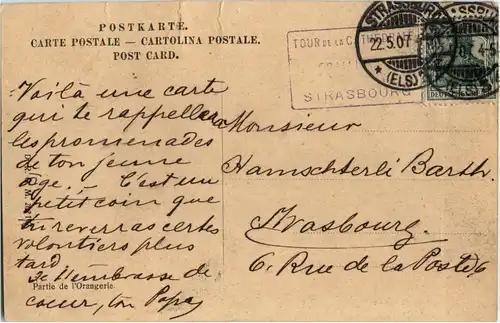 POSTKARTE.
CARTE POSTALE — CARTOLINA POSTALE.
POST CARD.
TOUR DE LA CATHÉDRALE
STRASBOURG
STRASSBURG
22.5.07
* (ELS)
Voilà une carte
qui te rappellera
les promenades
de ton jeune
age. — C'est un
petit coin que
tu reverras certes
volontiers plus
tard
Je t'embrasse de
coeur, ton Papa
Monsieur
Hamschterli Barth.
Strasbourg.
6. Rue de la Poste 6
Partie de l'Orangerie